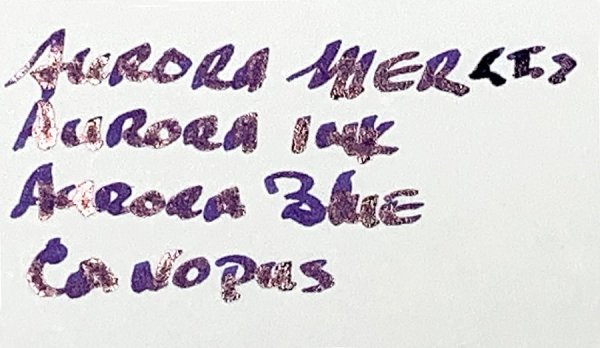 AURORA
AURORA INK
AURORA BLUE
CANOPUS